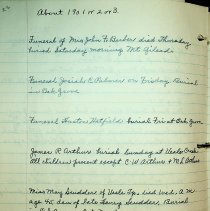 About 1901 or 2 or 3.
Funeral of Mrs John F. Barber died Thursday
buried Saturday morning Mt Gilead
Funeral Josiah C Palmer on Friday. Burial
in Oak Grove
Funeral Hatfield burial Fri at Oak Grove
James R Arthur burial Sunday at
All children present except C. W Arthur &
Miss Mary Scudders of died Wed. A. M.
age 45, dau of late Henry Scudder. Burial